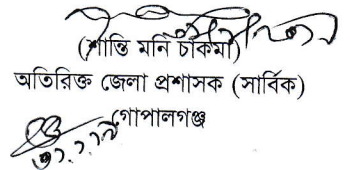 (শান্তি মনি চাকমা)
অতিরিক্ত জেলা প্রশাসক (সার্বিক)
গোপালগঞ্জ